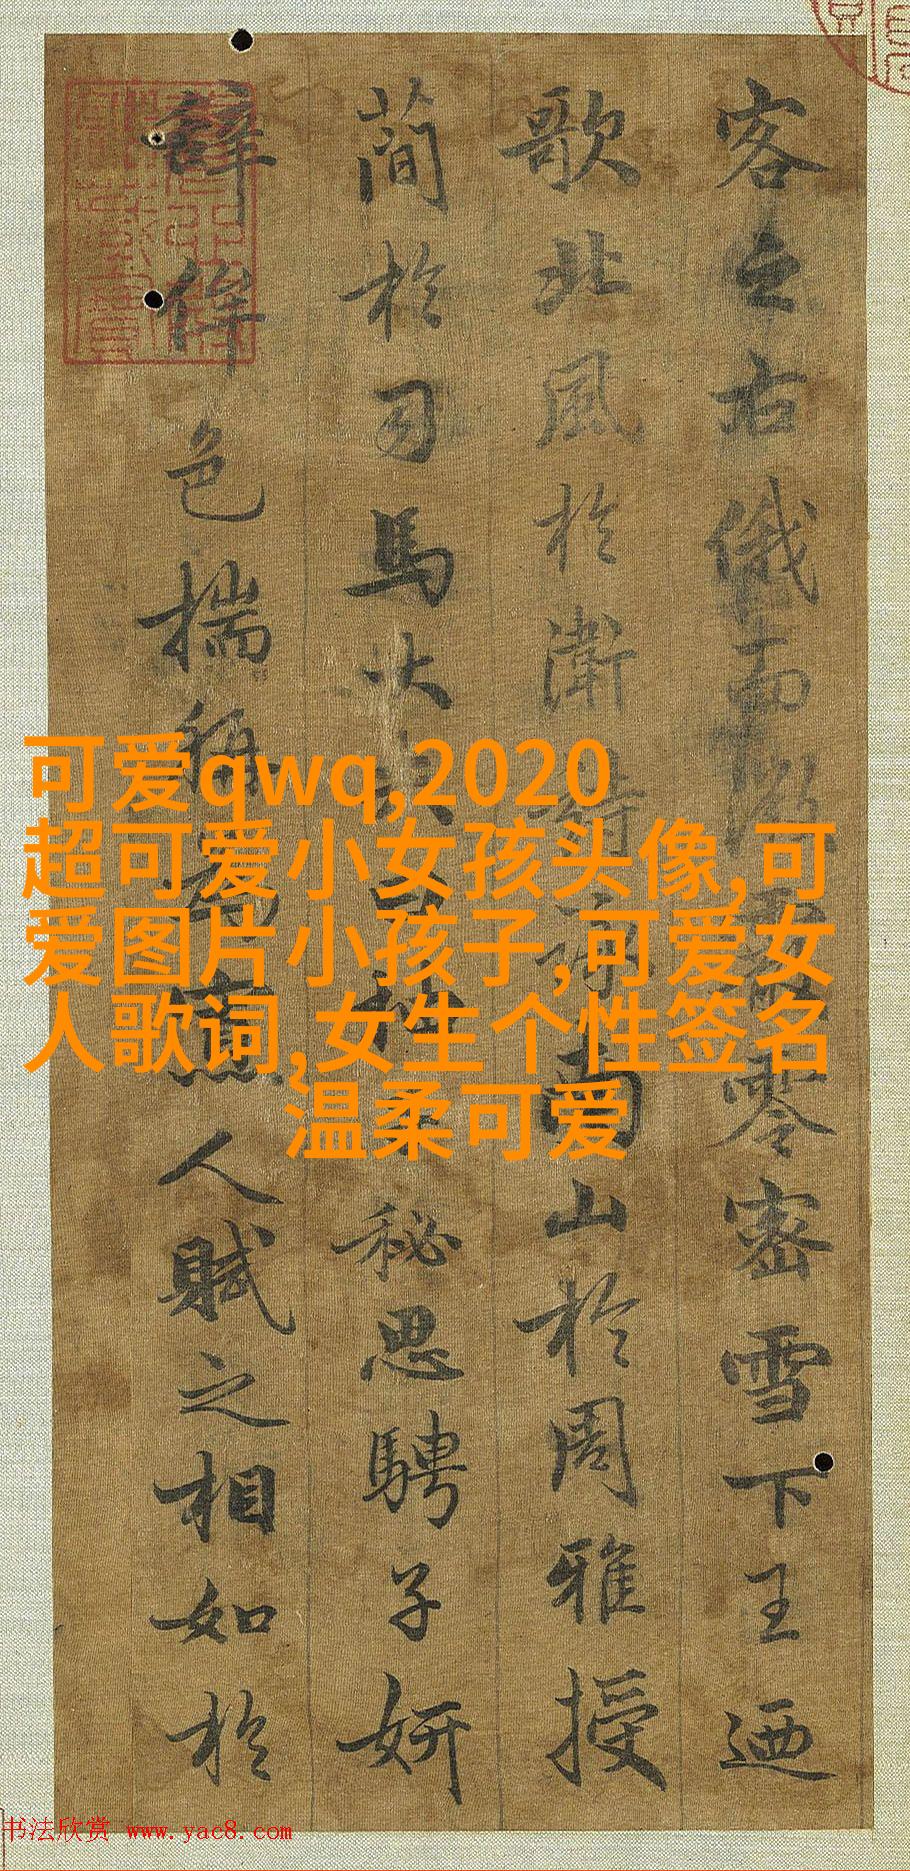 客之右俄而微霰零密雪下王迺
歌北風於衛詩詠南山於周雅授
蕑於司馬大夫曰抽子秘思騁子妍
辭侔色揣稱為寡人賦之相如於
可爱qwq,2020
超可爱小女孩头像,可
爱图片小孩子,可爱女
人歌词,女生个性签名
温柔可爱
书法欣赏 www.yac8.com